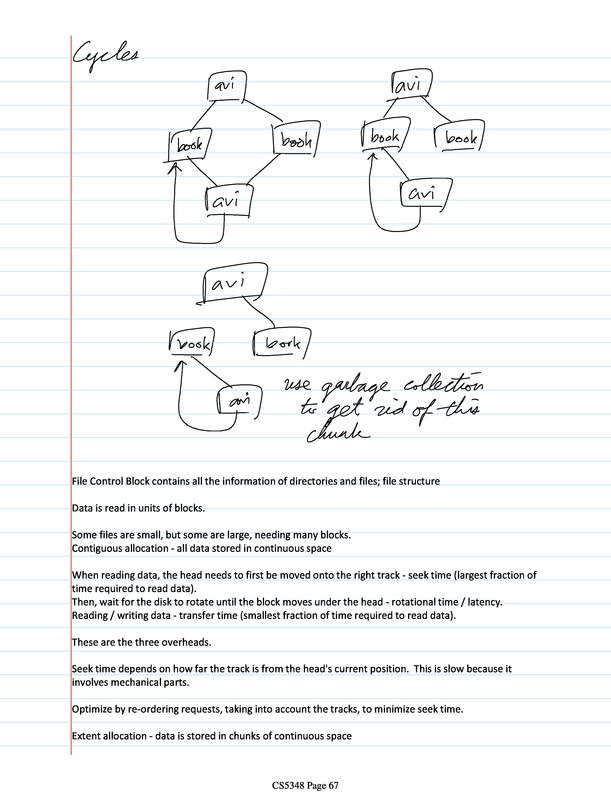 Cycles
avi
avi
book
book
book
book
avi
avi
avi
book
book
avi
use garbage collection
to get rid of this
chunk
File Control Block contains all the information of directories and files; file structure
Data is read in units of blocks.
Some files are small, but some are large, needing many blocks.
Contiguous allocation - all data stored in continuous space
When reading data, the head needs to first be moved onto the right track - seek time (largest fraction of
time required to read data).
Then, wait for the disk to rotate until the block moves under the head - rotational time / latency.
Reading / writing data - transfer time (smallest fraction of time required to read data).
These are the three overheads.
Seek time depends on how far the track is from the head's current position.  This is slow because it
involves mechanical parts.
Optimize by re-ordering requests, taking into account the tracks, to minimize seek time.
Extent allocation - data is stored in chunks of continuous space
CS5348 Page 67